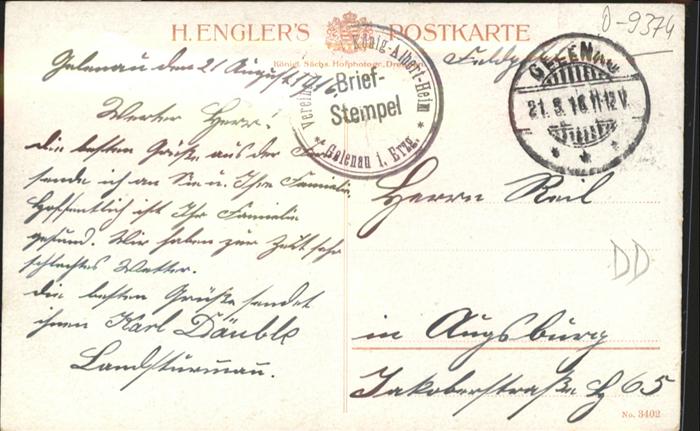 H. ENGLER'S POSTKARTE
Königl. Sächs. Hofphotogr., Dresden
0-9374
Gelenau den 21 August 1916
Feldpost
Verein König-Albert-Heim
Brief-
Stempel
* Gelenau i. Erzg. *
GELENAU
21.8.16.11-12V.
* * *
Werter Herr!
Die besten Grüße aus der
sende ich an Sie u. Ihre Familie.
Hoffentlich ist Ihr Familie
gesund. Wir haben zur Zeit sehr
schlechtes Wetter.
Die besten Grüße sendet
ihnen Karl Däuble
Landsturmman.
Herrn Reil
DD
in Augsburg
Jakoberstraße H 65
No. 3402